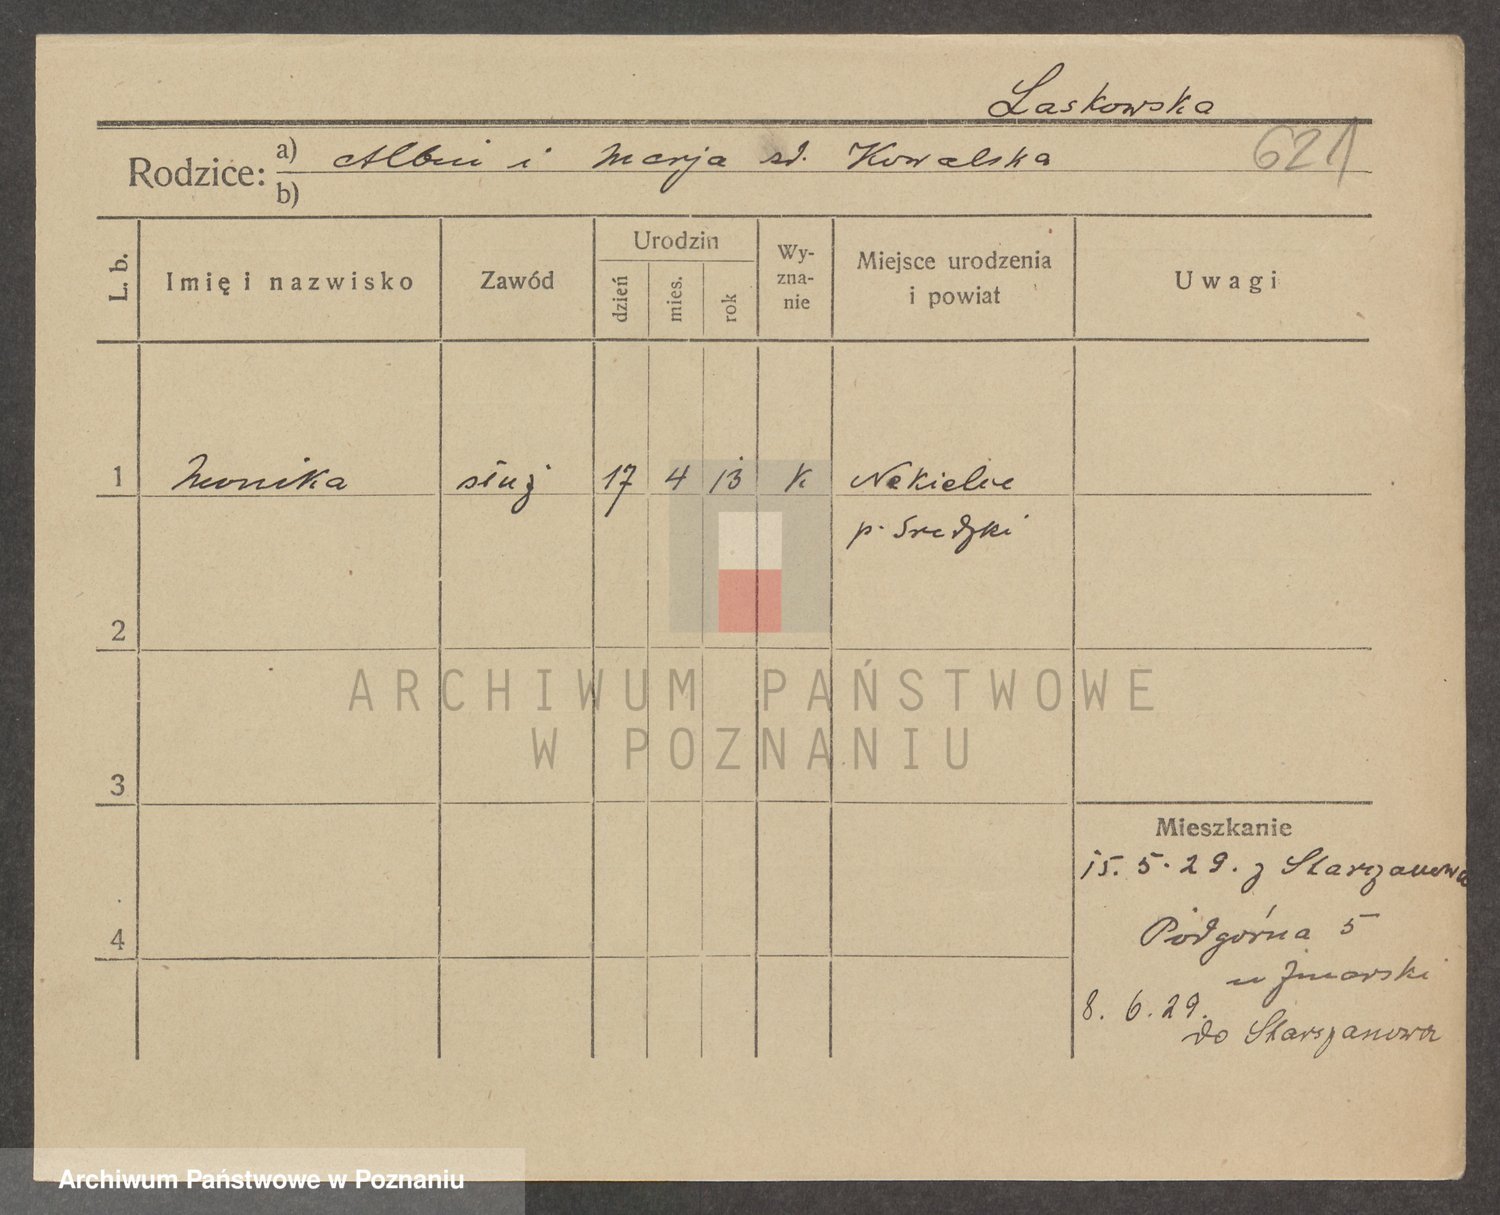 Laskowska
621
Rodzice: a) Albin i Marja zd. Kowalska
b)
L. b. Imię i nazwisko Zawód Urodzin dzień mies. rok Wy-zna-nie Miejsce urodzenia i powiat Uwagi
1 Monika służ 17 4 13 k Nekielce
p. Sredzki
2
ARCHIWUM PAŃSTWOWE
W POZNANIU
3
Mieszkanie
15. 5. 29. z Starczanowa
4
Podgórna 5
u
8. 6. 29.
do Starszanowa
Archiwum Państwowe w Poznaniu